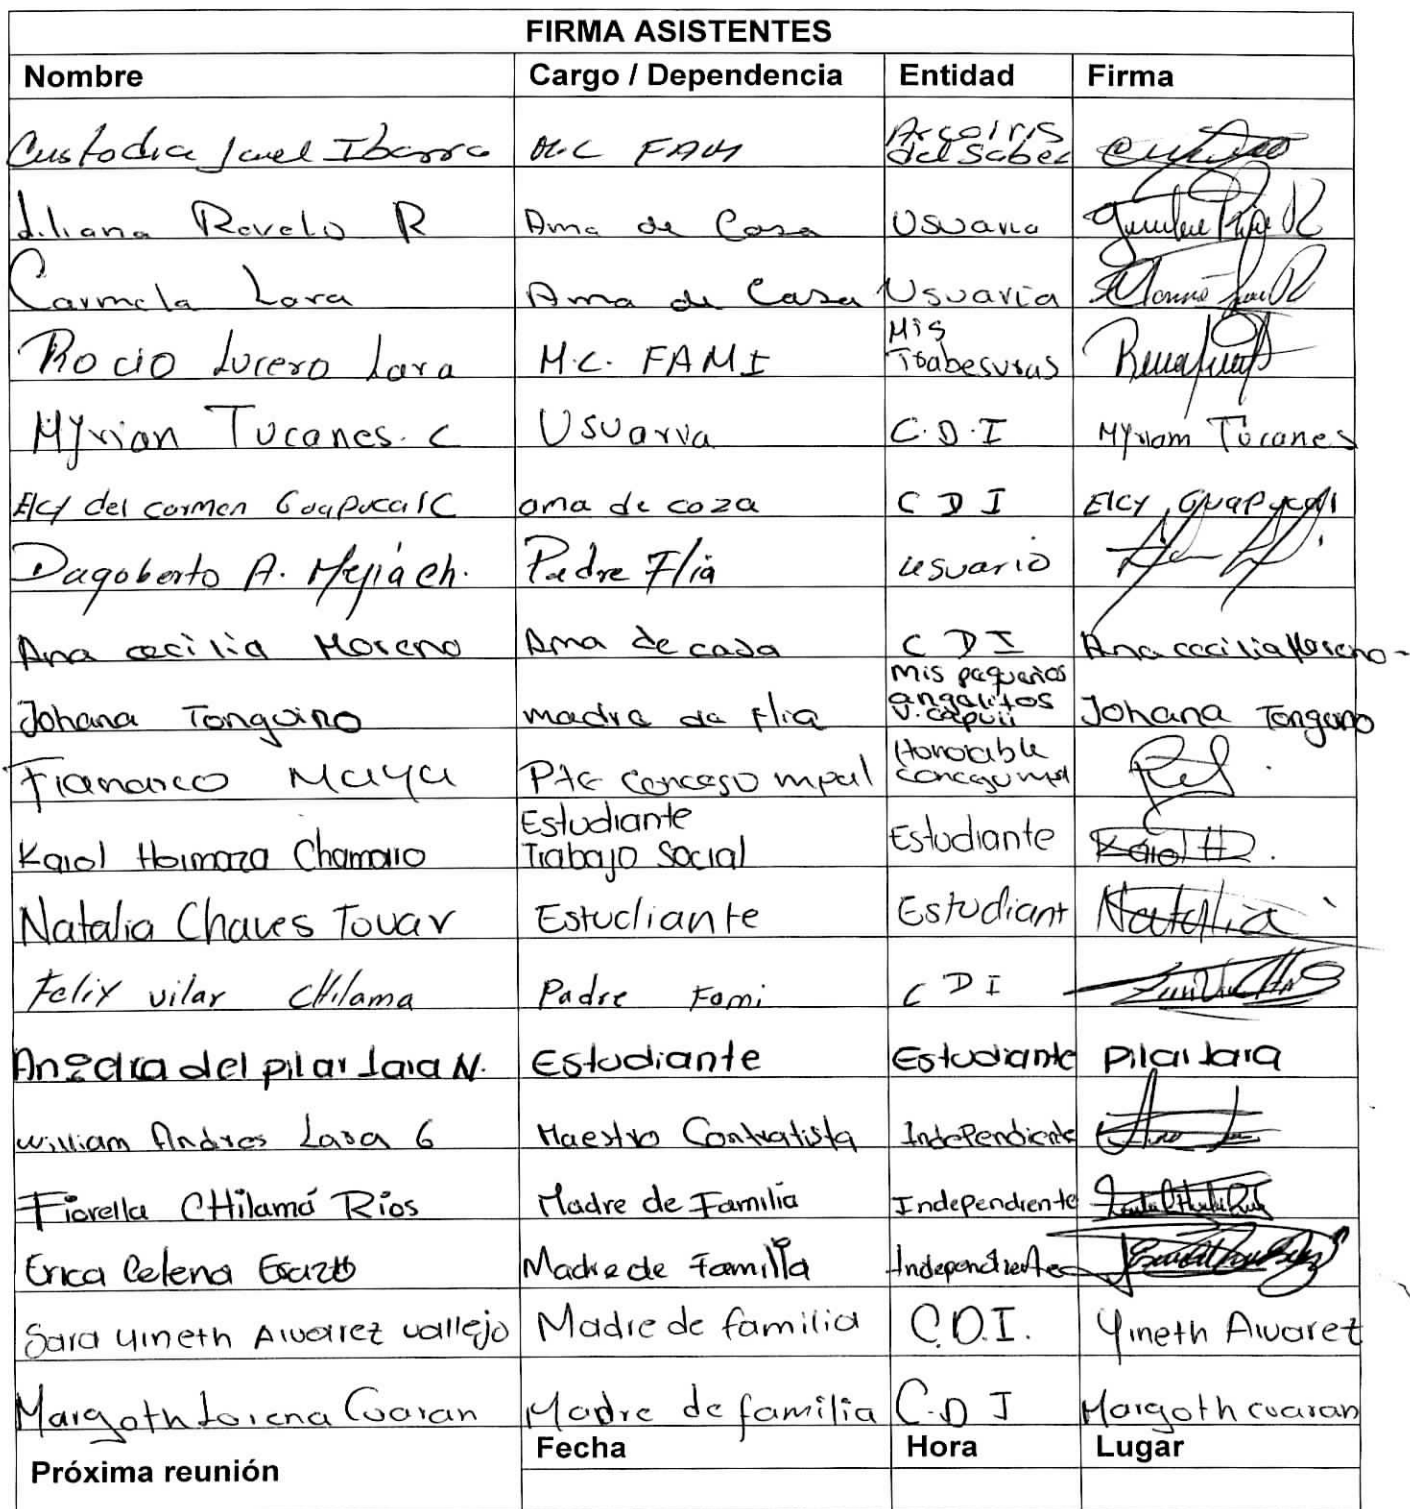 FIRMA ASISTENTES
Nombre Cargo / Dependencia Entidad Firma
Custodia Ibarra M.C FAMI Arcoiris del Saber
Liliana Revelo R Ama de Casa Usuaria
Carmela Lara Ama de Casa Usuaria
Rocio Lucero Lara M.C. FAMI Mis
Myrian Tucanes. C Usuaria C.D.I Myriam Tucanes
Elcy del carmen ama de coza C D I Elcy
Dagoberto A. Mejia ch. Padre Flia usuario
Ana cecilia Moreno Ama de casa C D I Ana cecilia Moreno
Johana Tonguino madre de flia Mis pequeños angelitos Johana
Maya mpal Honorable
Karol Chamorro Estudiante Trabajo Social Estudiante Karol H
Natalia Chaves Tovar Estudiante Estudiant Natalia
Felix vilar CHilama Padre Fami C D I
del pilar Jara N. Estudiante Estudiante Pilar Jara
William Andres Lara G Maestro Contratista Independiente
Fiorella CHilamá Ríos Madre de Familia Independiente
Erica Celena Madre de Familia Independiente
Sara Yineth Alvarez Vallejo Madre de familia C.D.I. Yineth Alvarez
Margoth Lorena Cuaran Madre de familia C.D I Margoth cuaran
Próxima reunión Fecha Hora Lugar